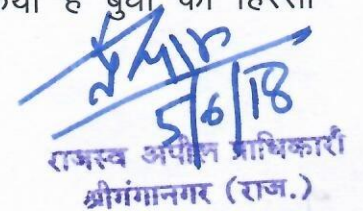 है बुवा का हिस्सा
5/6/18
राजस्व अपील प्राधिकारी
श्रीगंगानगर (राज.)